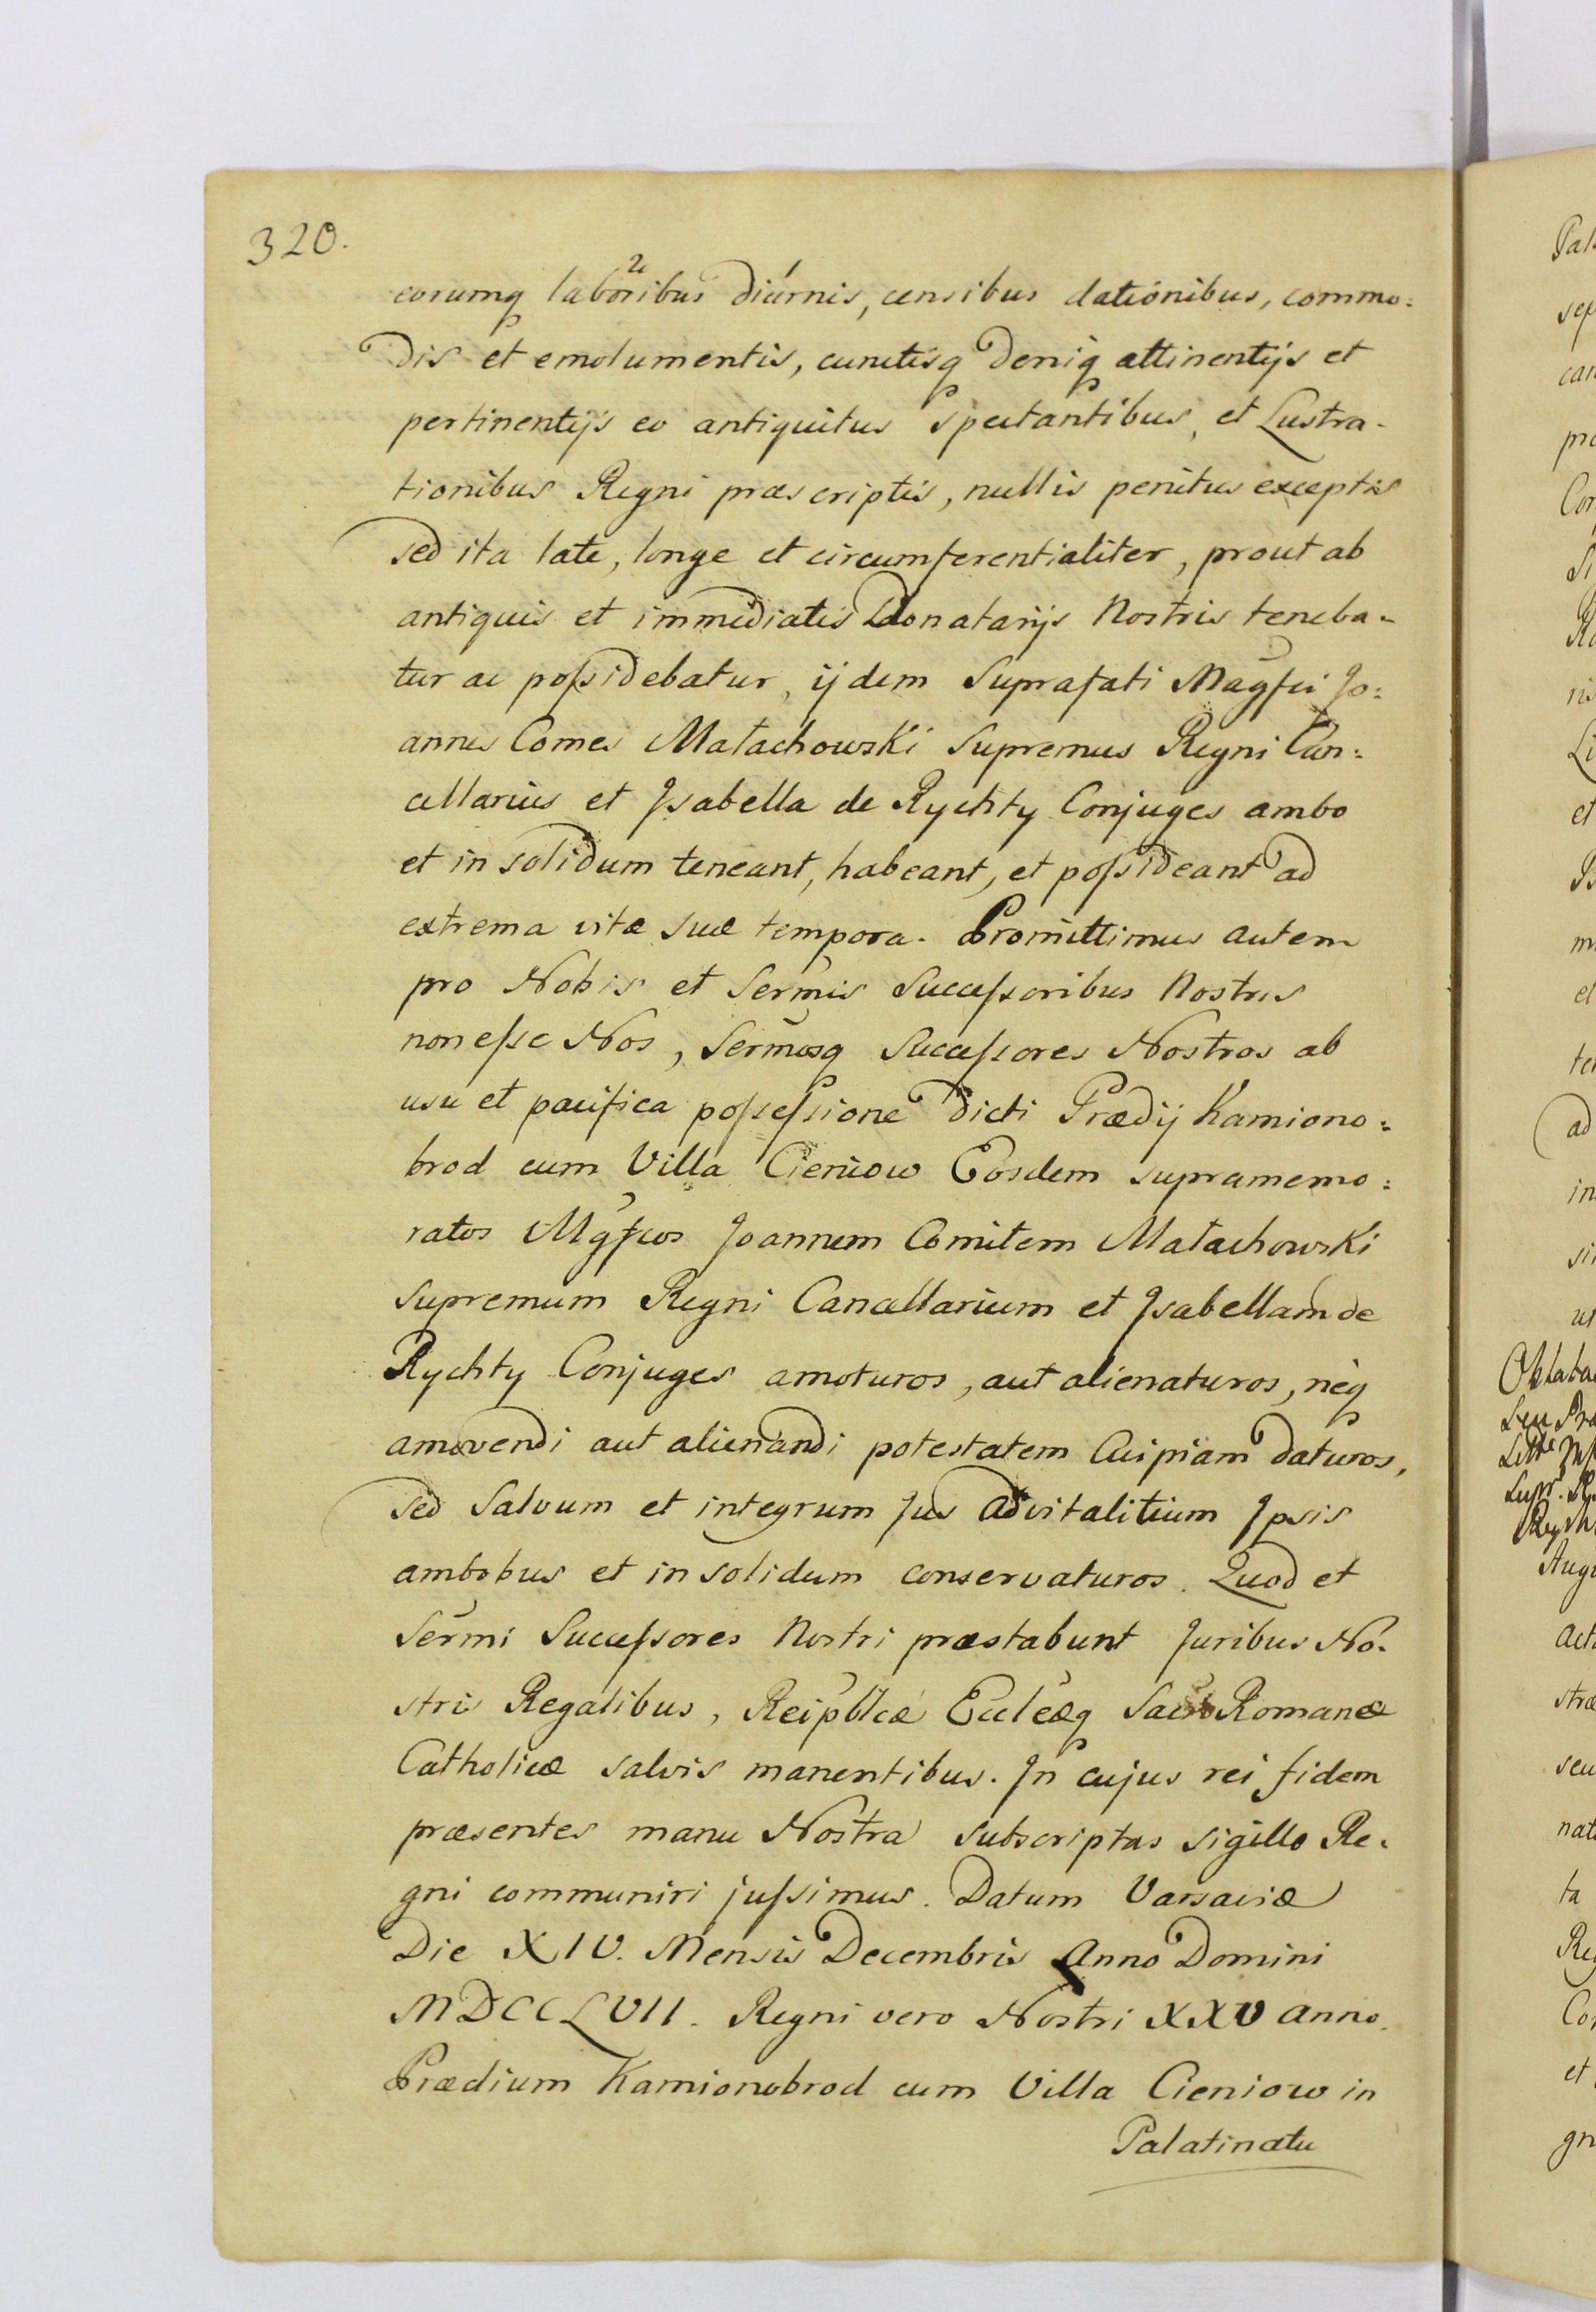 320.
eorumq laboribus diurnis, censibus dationibus, commo=
dis et emolumentis, cunctisq deniq attinentijs et
pertinentijs eo antiquitus spectantibus, et Lustra-
tionibus Regni præscriptis, nullis penitus exceptis
sed ita late, longe et circumferentialiter, prout ab
antiquis et immediatis Donatarijs Nostris teneba-
tur ac possidebatur, ijdem Suprafati Magfci Jo=
annes Comes Małachowski Supremus Regni Can=
cellarius et Jsabella de Rychty Conjuges ambo
et in solidum teneant, habeant, et possideant ad
extrema vitæ suæ tempora. Promittimus autem
pro Nobis et Sermis Successoribus Nostris
non esse Nos, Sermosq Successores Nostros ab
usu et pacifica possessione dicti Prædij Kamiono=
brod cum Villa Cieniow Eosdem supramemo=
ratos Mgfcos Joannem Comitem Małachowski
Supremum Regni Cancellarium et Jsabellam de
Rychty Conjuges amoturos, aut alienaturos, neq
amovendi aut alienandi potestatem Cuipiam daturos,
sed Salvum et integrum Jus advitalitium Jpsis
ambobus et in solidum conservaturos. Quod et
Sermi Successores Nostri præstabunt Juribus No-
stris Regalibus, Reipblcæ Eccleæq Romanæ
Catholicæ salvis manentibus. Jn cujus rei fidem
præsentes manu Nostra subscriptas sigillo Re-
gni communiri jussimus. Datum Varsaviæ
Die XIV. Mensis Decembris Anno Domini
MDCCLVII. Regni vero Nostri XXV anno.
Prædium Kamionobrod cum Villa Cieniow in
Palatinatu